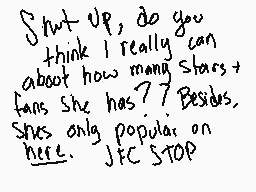 Shut up, do you
think I really can
about how many stars +
fans she has?? Besides,
Shes only popular on
here. JFC STOP